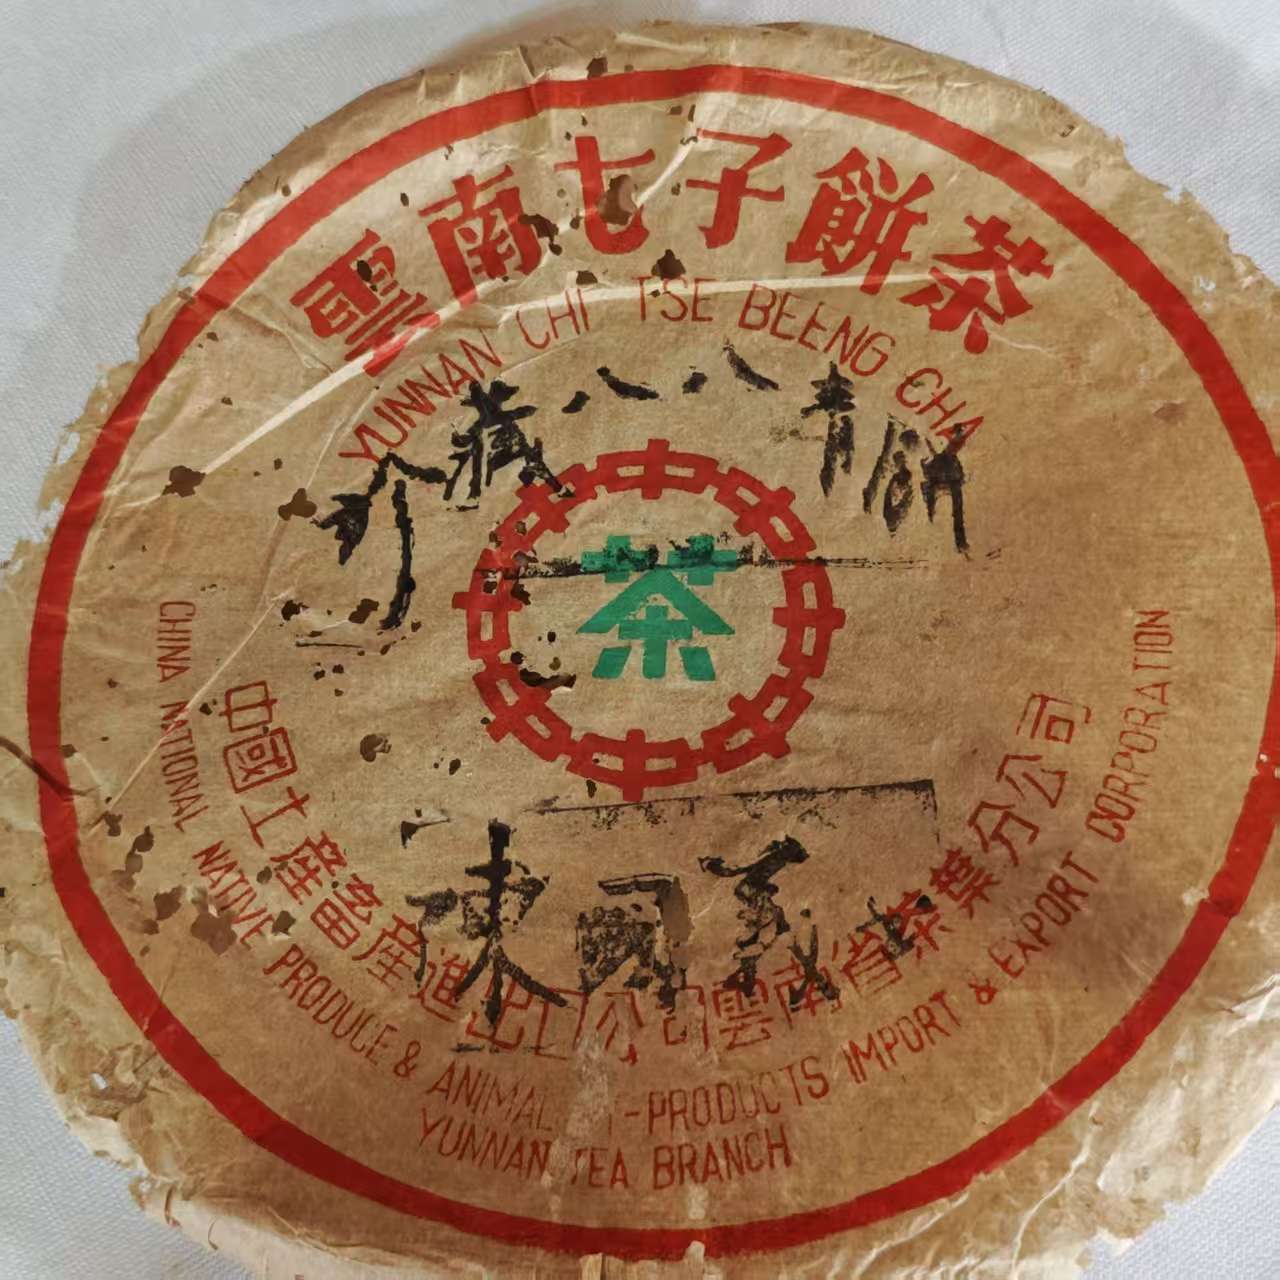 雲南七子餅茶
YUNNAN CHI TSE BEENG CHA
珍藏八八青餅
茶
陳國義
中國土產畜產進出口公司雲南省茶葉分公司
CHINA NATIONAL NATIVE PRODUCE & ANIMAL -PRODUCTS IMPORT & EXPORT CORPORATION
YUNNAN TEA BRANCH